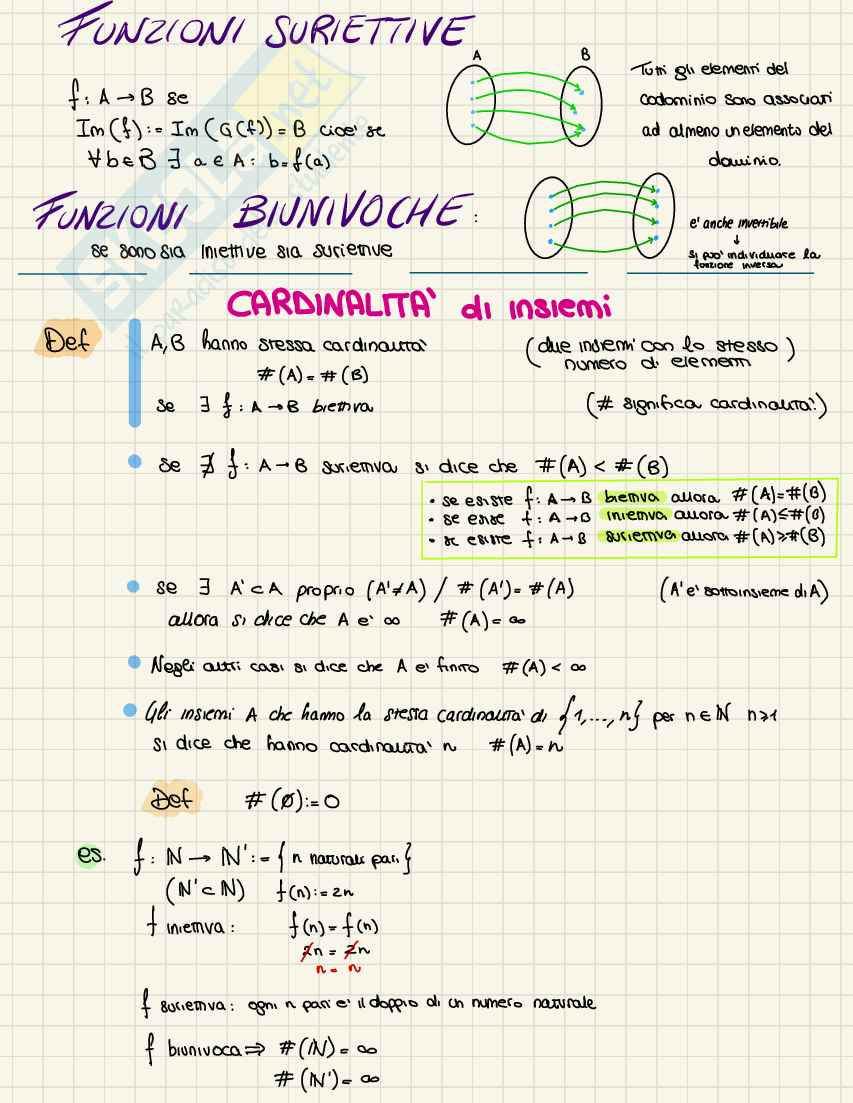 FUNZIONI SURIETTIVE
f: A → B se
Im(f) := Im(G(f)) = B cioè se
∀b∈B ∃ a∈A: b=f(a)
A B
Tutti gli elementi del
codominio sono associati
ad almeno un elemento del
dominio.
FUNZIONI BIUNIVOCHE:
se sono sia iniettive sia suriettive
e' anche invertibile
↓
si può individuare la
funzione inversa
CARDINALITA' di insiemi
Def
A,B hanno stessa cardinalità
#(A) = #(B)
se ∃ f: A → B biettiva
(due insiemi con lo stesso
numero di elementi)
(# significa cardinalità!)
• se ∄ f: A → B suriettiva si dice che #(A) < #(B)
• se esiste f: A → B biettiva allora #(A)=#(B)
• se esiste f: A → B iniettiva allora #(A)≤#(B)
• se esiste f: A → B suriettiva allora #(A)≥#(B)
• se ∃ A'⊂A proprio (A'≠A) / #(A') = #(A) (A' e' sottoinsieme di A)
allora si dice che A e' ∞ #(A) = ∞
• Negli altri casi si dice che A e' finito #(A) < ∞
• Gli insiemi A che hanno la stessa cardinalità di {1,...,n} per n∈ℕ n≥1
si dice che hanno cardinalità n #(A) = n
Def #(∅) := 0
es. f: ℕ → ℕ' := {n naturali pari}
(ℕ'⊂ℕ) f(n) := 2n
f iniettiva: f(n) = f(n)
2n = 2n
n = n
f suriettiva: ogni n pari e' il doppio di un numero naturale
f biunivoca ⇒ #(ℕ) = ∞
#(ℕ') = ∞